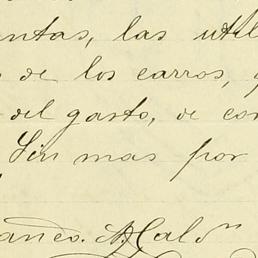 ntas, las util
de los carros,
del gasto, de con
Sin mas por
anco. A. Cald